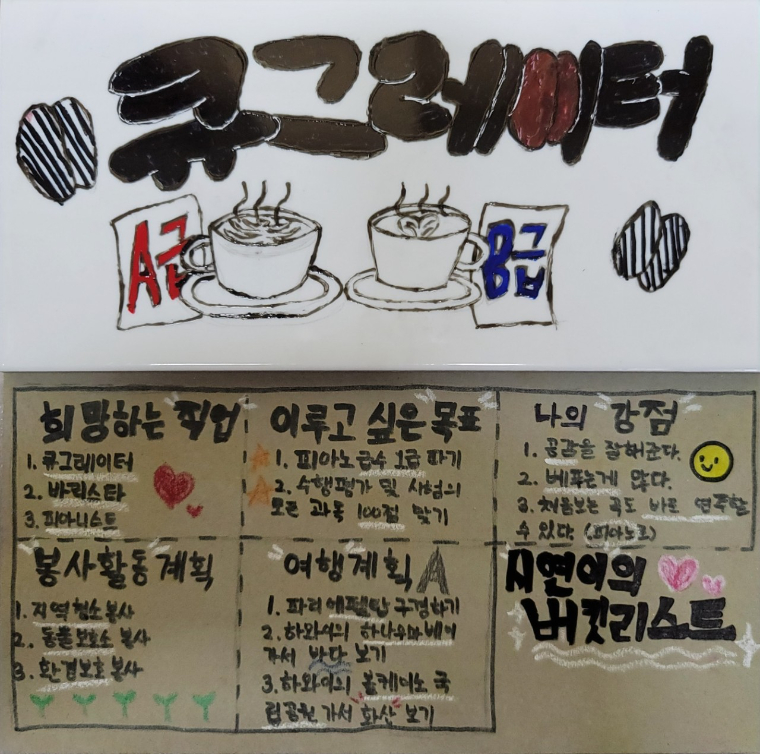 큐그레이터
A급
B급
희망하는 직업
1. 큐그레이터
2. 바리스타
3. 피아니스트
이루고 싶은 목표
1. 피아노 급수 1급 따기
2. 수행평가 및 시험의
모든 과목 100점 맞기
나의 강점
1. 공감을 잘해준다.
2. 베푸는게 많다.
3. 처음보는 곡도 바로 연주할
수 있다. (피아노로)
봉사활동계획
1. 지역청소봉사
2. 동물보호소 봉사
3. 환경보호봉사
여행계획
1. 파리에펠탑 구경하기
2. 하와이의 하나우마베이
가서 바다 보기
3. 하와이의 볼케이노 국
립공원 가서 화산 보기
시연이의
버킷리스트